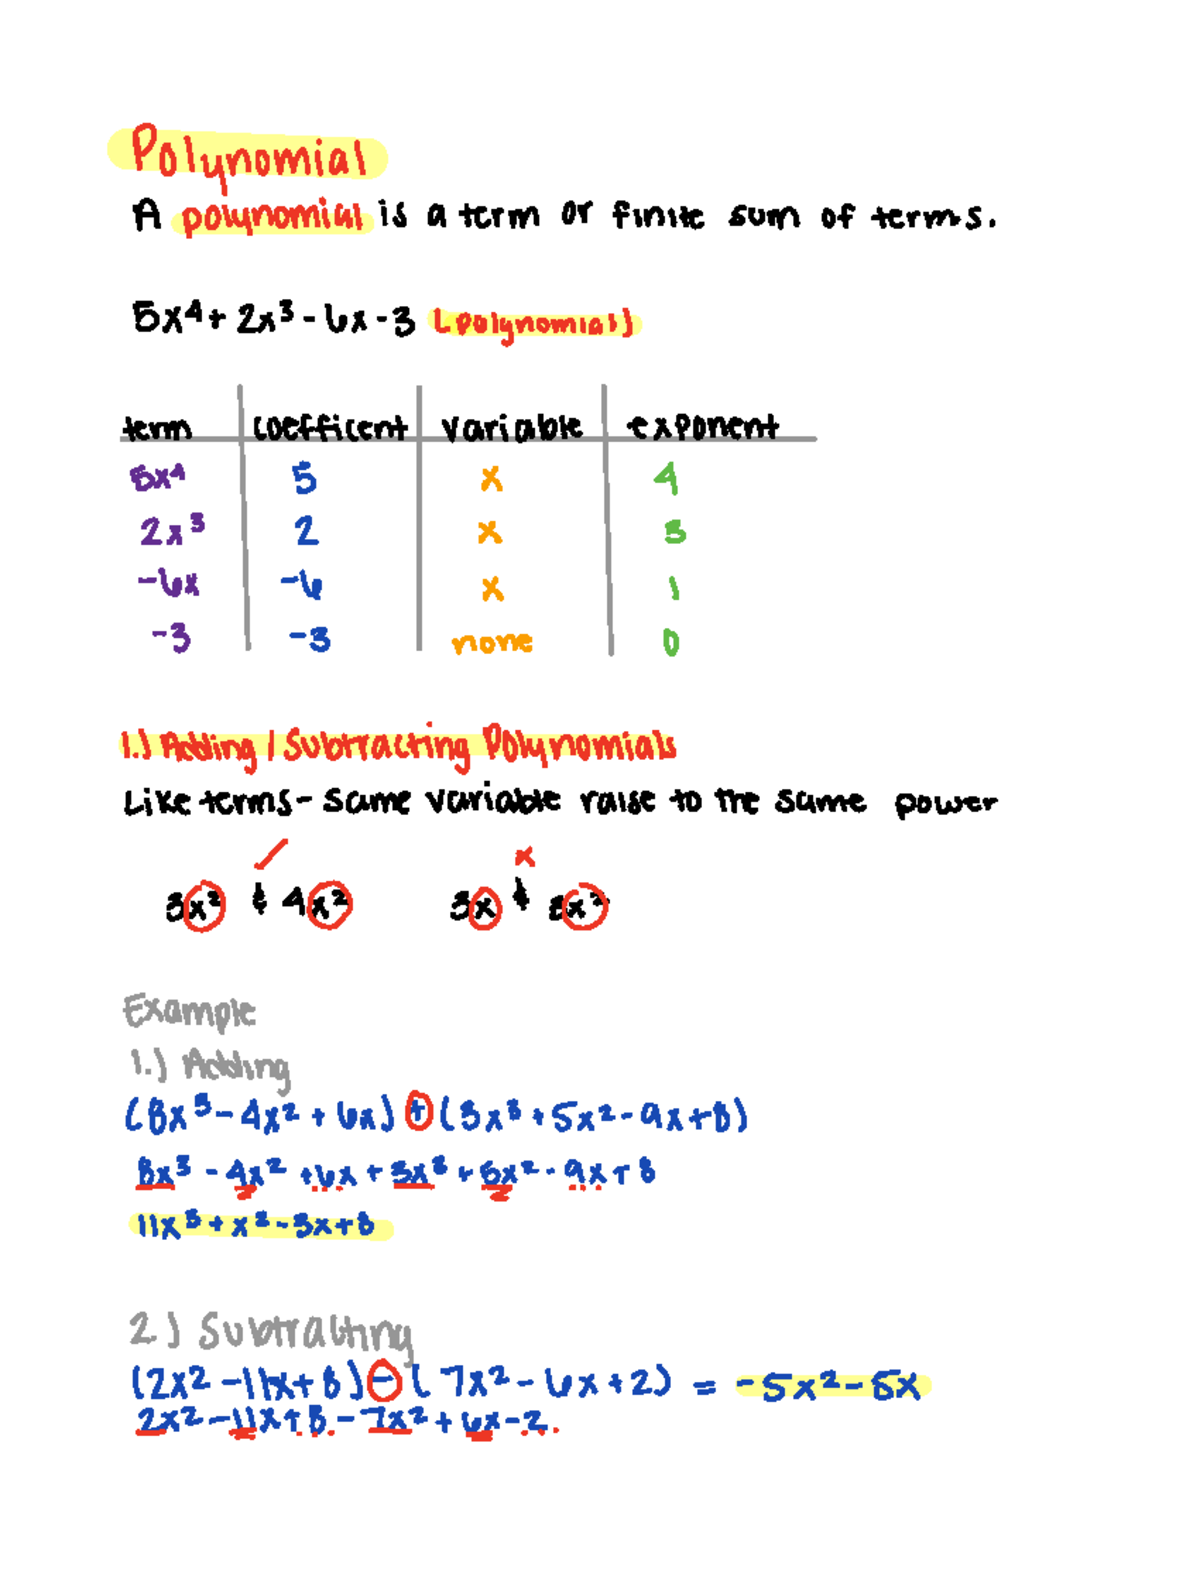 Polynomial
A polynomial is a term or finite sum of terms.
5x⁴ + 2x³ - 6x - 3 (polynomial)
term coefficent variable exponent
5x⁴ 5 x 4
2x³ 2 x 3
-6x -6 x 1
-3 -3 none 0
1.) Adding / Subtracting Polynomials
Like terms - same variable raise to the same power
✓ x
3x² & 4x² 3x & 3x²
Example
1.) Adding
(8x³ - 4x² + 6x) + (3x³ + 5x² - 9x + 8)
8x³ - 4x² + 6x + 3x³ + 5x² - 9x + 8
11x³ + x² - 3x + 8
2.) Subtracting
(2x² - 11x + 8) - (7x² - 6x + 2) = -5x² - 5x
2x² - 11x + 8 - 7x² + 6x - 2